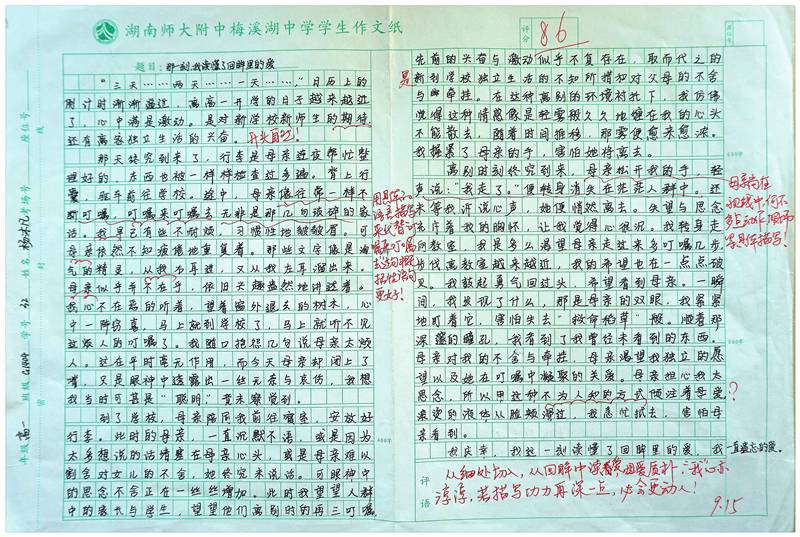 湖南师大附中梅溪湖中学学生作文纸
评分
86
题目：那一刻,我读懂了回眸里的爱
"三天……两天……一天……"日历上的
倒计时渐渐逼近，离高一开学的日子越来越近
了，心中满是激动。是对新学校新师生的期待
还有离家独立生活的兴奋。
开头直入！
那天终究到来了，行李是母亲连夜帮忙整
理好的，东西也被一样样检查过多遍。背上行
囊，驱车前往学校。途中，母亲像往常一样不
断叮嘱，叮嘱来叮嘱去无非是那几句琐碎的家
话。我早已有些不耐烦，习惯性地皱皱眉。可
母亲依然不知疲倦地重复着。那些文字像是淘
气的精灵，从我右耳进，又从我左耳溜出来。
母亲似乎毫不在乎，依旧兴趣盎然地讲述着。
我心不在焉的听着，望着窗外退去的树木，心
中一阵窃喜，马上就到学校了，马上就听不见
这烦人的叮嘱了。我随口抱怨几句说母亲太烦
人。这在平时毫无作用，而今天母亲却闭上了
嘴，只是眼神中透露出一丝无奈与哀伤，我想
我当时可真是"聪明"，竟未察觉到。
到了学校，母亲陪同我前往寝室，安放好
行李。此时的母亲，一直沉默不语，或是因为
太多想说的话堵塞在母亲心头，或是母亲难以
割舍对女儿的不舍，她终究未说话。可眼神中
的思念不舍正在一丝丝增加。此时我望望人群
中的家长与学生，望望他们离别时的再三叮嘱
用具体的
语言描写
来代替"叮
嘱来叮嘱
去"这句概
括性语句
更好！
先前的兴奋与激动似乎不复存在，取而代之的
是
新到学校独立生活的不知所措和对父母的不舍
与牵挂。在这种离别的环境衬托下，我仿佛
觉得这种情感像是轻雾般久久地缠在我的心头
不能散去，随着时间推移，那雾便愈来愈浓。
我握紧了母亲的手，害怕她将离去。
离别时刻终究到来，母亲松开我的手，轻
声说："我走了。"便转身消失在茫茫人群中。还
未等我讲说心声，她便悄然离去。失望与思念
我的胸怀，让我觉得心很沉。我独身走
向教室，我是多么渴望母亲走过来多叮嘱几步
离教室越来越近，我的希望也在一点点破
灭。我鼓起勇气回过头，希望看到母亲。一瞬
间，我发现了什么，那是母亲的双眼，我紧紧
地盯着它，害怕失去"救命稻草"般。顺着那
深邃的瞳孔，我看到了我曾经未看到的东西。
母亲对我的不舍与牵挂，母亲渴望我独立的愿
望以及她在叮嘱中凝聚的关爱。母亲担心我太
思念，所以用这种不为人知的方式倾注着母爱。
？
滚烫的液体从脸颊滑过，我急忙拭去，害怕母
亲看到。
我庆幸，我这一刻读懂了回眸里的爱，我一直遗忘的爱。
母亲尚在
视线中，何不
多点动作、周饰
等具体描写！
评语
从细处切入，从回眸中读懂母爱质朴，"我"心亦
淳淳，若描写功力再深一点，必会更动人！
9.15
400字
600字
年级 高一
班级
学号
姓名
考场号
座位号
密
封
线